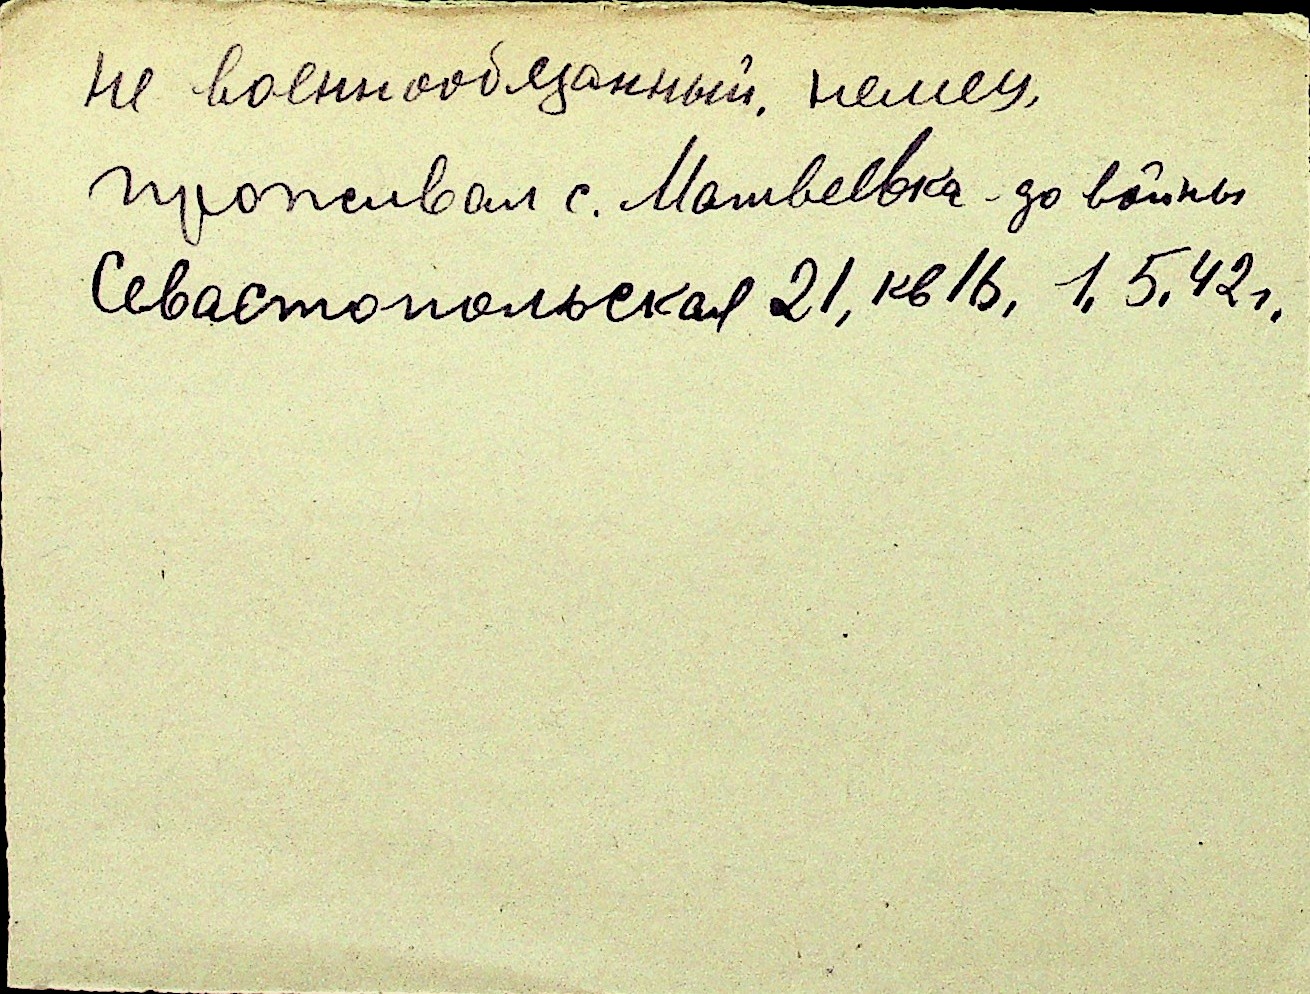 Не военнообязанный, немец,
проживал с. Матвеевка - до войны
Севастопольская 21, кв 16, 1.5.42г.